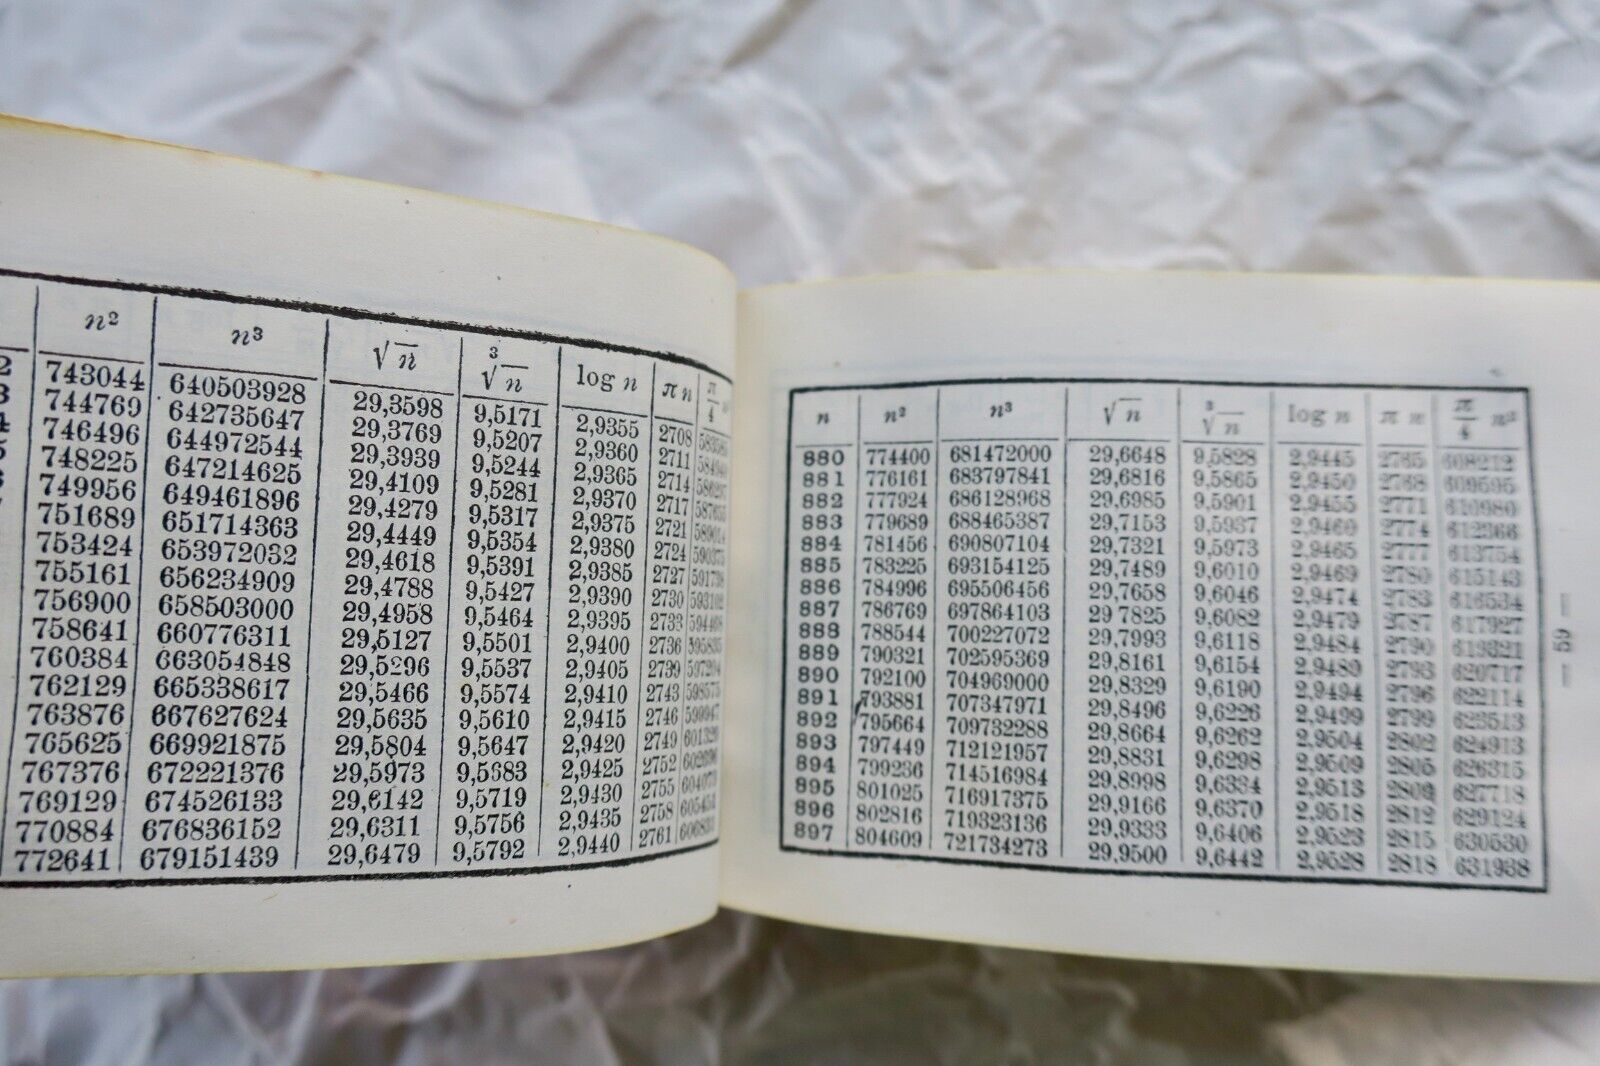 n² n³ √n ³√n log n π n π/4 n²
2 743044 640503928 29,3598 9,5171 2,9355 2708
3 744769 642735647 29,3769 9,5207 2,9360 2711
4 746496 644972544 29,3939 9,5244 2,9365 2714
5 748225 647214625 29,4109 9,5281 2,9370 2717
749956 649461896 29,4279 9,5317 2,9375 2721
751689 651714363 29,4449 9,5354 2,9380 2724
753424 653972032 29,4618 9,5391 2,9385 2727 591738
755161 656234909 29,4788 9,5427 2,9390 2730 593102
756900 658503000 29,4958 9,5464 2,9395 2733 594468
758641 660776311 29,5127 9,5501 2,9400 2736 595835
760384 663054848 29,5296 9,5537 2,9405 2739 597204
762129 665338617 29,5466 9,5574 2,9410 2743 598575
763876 667627624 29,5635 9,5610 2,9415 2746 599947
765625 669921875 29,5804 9,5647 2,9420 2749 601320
767376 672221376 29,5973 9,5683 2,9425 2752 602696
769129 674526133 29,6142 9,5719 2,9430 2755 604073
770884 676836152 29,6311 9,5756 2,9435 2758 605451
772641 679151439 29,6479 9,5792 2,9440 2761 606831
n n² n³ √n ³√n log n π n π/4 n²
880 774400 681472000 29,6648 9,5828 2,9445 2765 608212
881 776161 683797841 29,6816 9,5865 2,9450 2768 609595
882 777924 686128968 29,6985 9,5901 2,9455 2771 610980
883 779689 688465387 29,7153 9,5937 2,9460 2774 612366
884 781456 690807104 29,7321 9,5973 2,9465 2777 613754
885 783225 693154125 29,7489 9,6010 2,9469 2780 615143
886 784996 695506456 29,7658 9,6046 2,9474 2783 616534
887 786769 697864103 29 7825 9,6082 2,9479 2787 617927
888 788544 700227072 29,7993 9,6118 2,9484 2790 619321
889 790321 702595369 29,8161 9,6154 2,9489 2793 620717
890 792100 704969000 29,8329 9,6190 2,9494 2796 622114
891 793881 707347971 29,8496 9,6226 2,9499 2799 623513
892 795664 709732288 29,8664 9,6262 2,9504 2802 624913
893 797449 712121957 29,8831 9,6298 2,9509 2805 626315
894 799236 714516984 29,8998 9,6334 2,9513 2809 627718
895 801025 716917375 29,9166 9,6370 2,9518 2812 629124
896 802816 719323136 29,9333 9,6406 2,9523 2815 630530
897 804609 721734273 29,9500 9,6442 2,9528 2818 631938
— 59 —